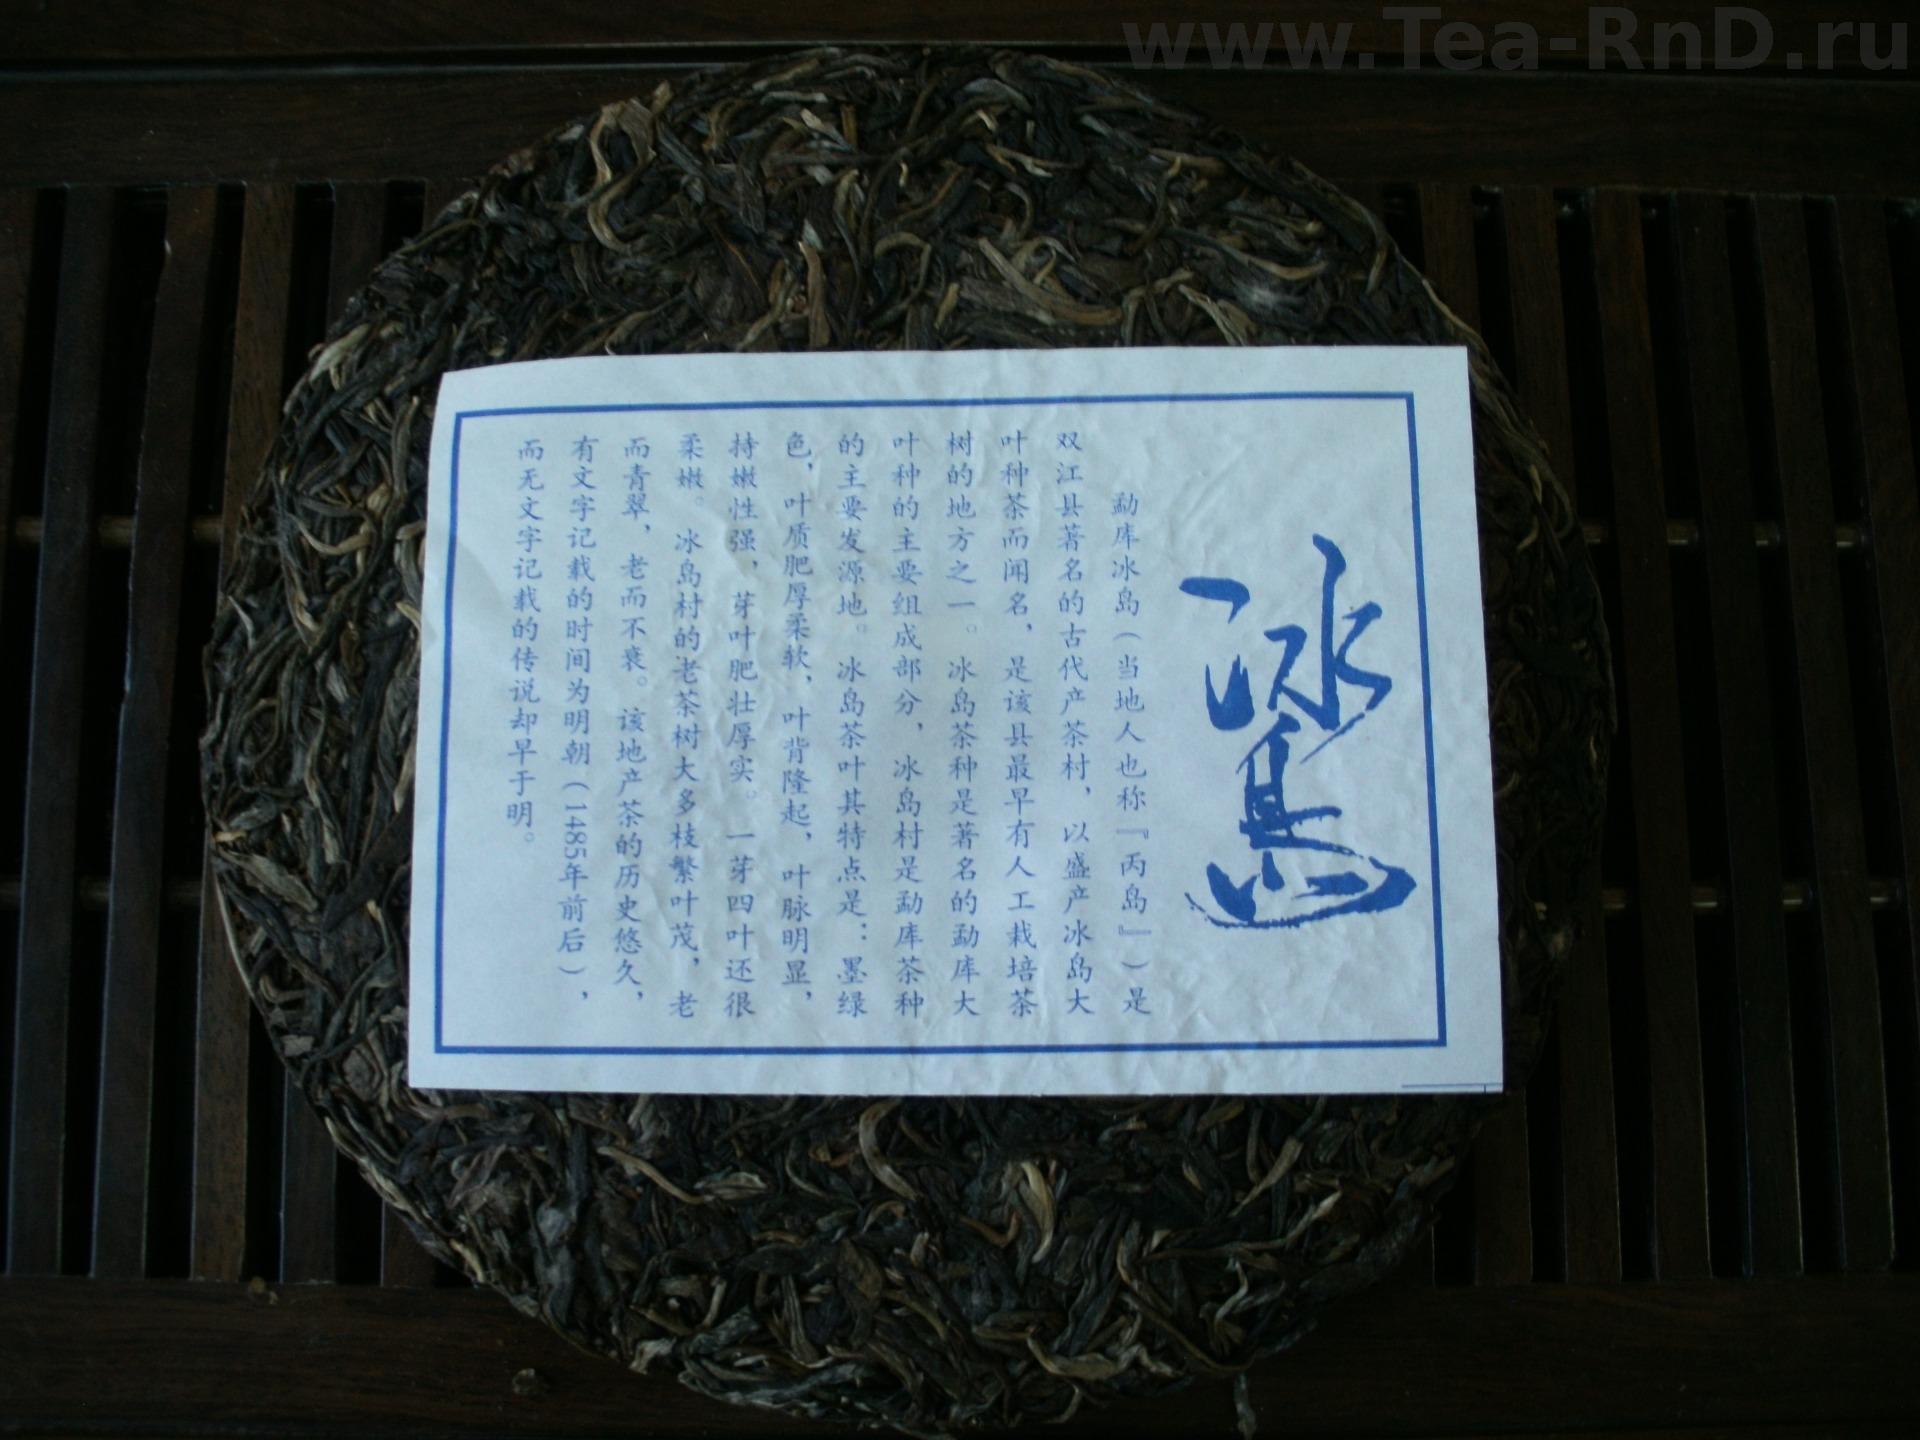 www.Tea-RnD.ru
冰岛
勐库冰岛（当地人也称『丙岛』）是
双江县著名的古代产茶村，以盛产冰岛大
叶种茶而闻名，是该县最早有人工栽培茶
树的地方之一。冰岛茶种是著名的勐库大
叶种的主要组成部分，冰岛村是勐库茶种
的主要发源地。冰岛茶叶其特点是：墨绿
色，叶质肥厚柔软，叶背隆起，叶脉明显，
持嫩性强，芽叶肥壮厚实。一芽四叶还很
柔嫩。冰岛村的老茶树大多枝繁叶茂，老
而青翠，老而不衰。该地产茶的历史悠久，
有文字记载的时间为明朝（1485年前后），
而无文字记载的传说却早于明。